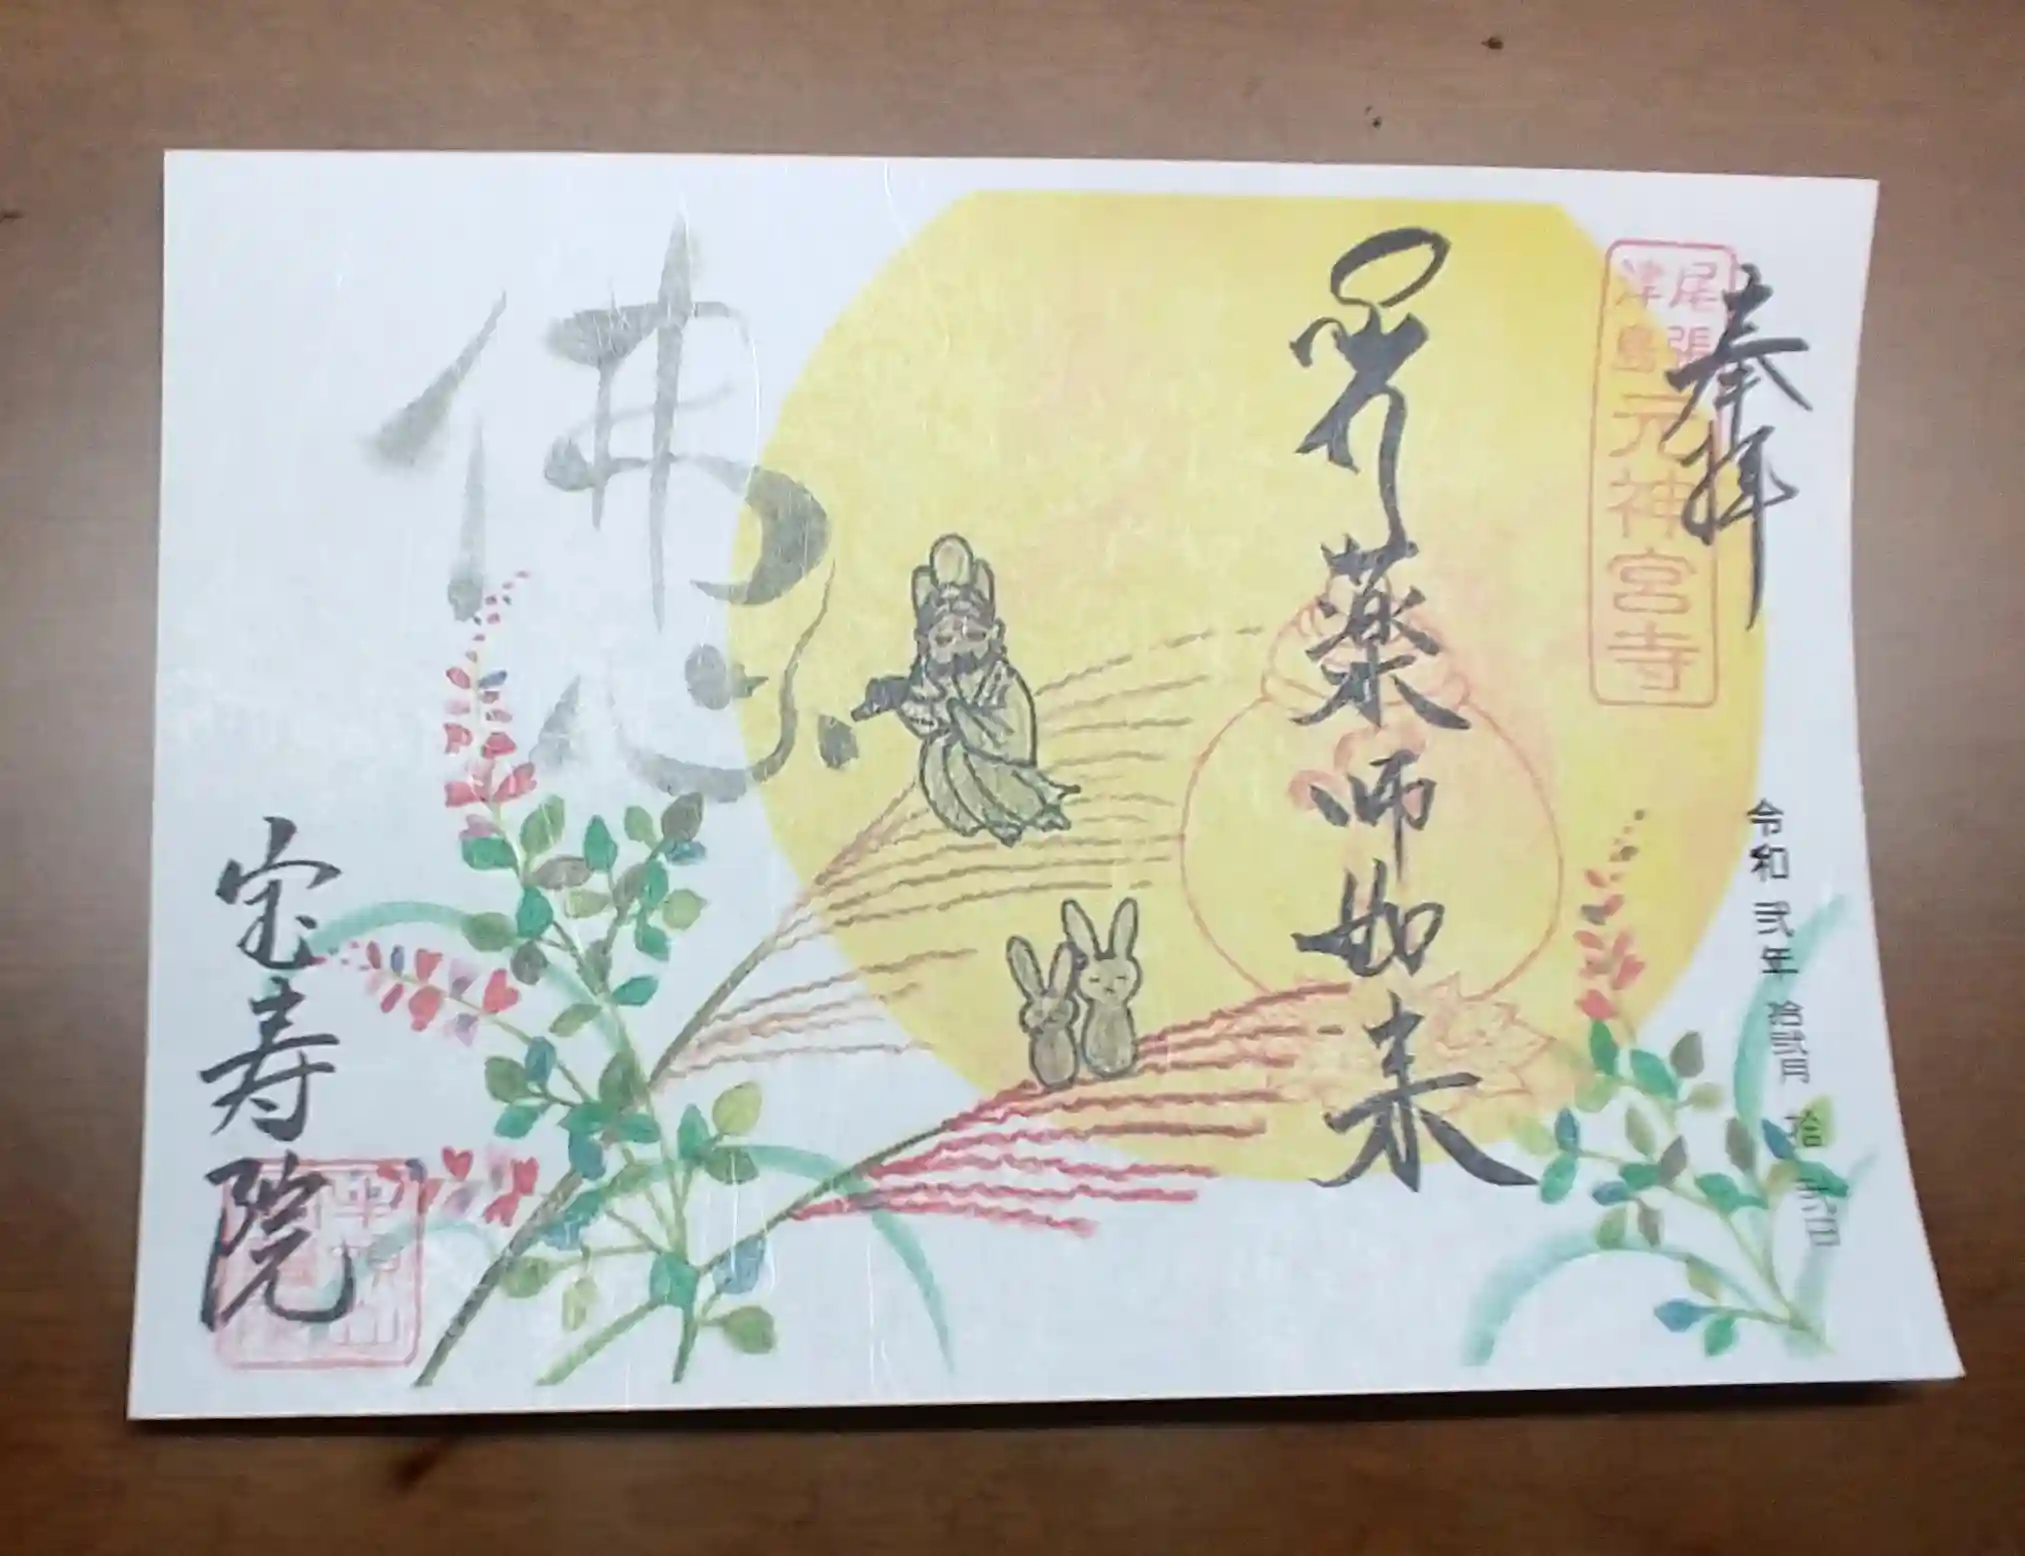 奉拝
尾張
津島
元神宮寺
令和弐年拾弐月拾弐日
薬師如来
佛心
宝寿院